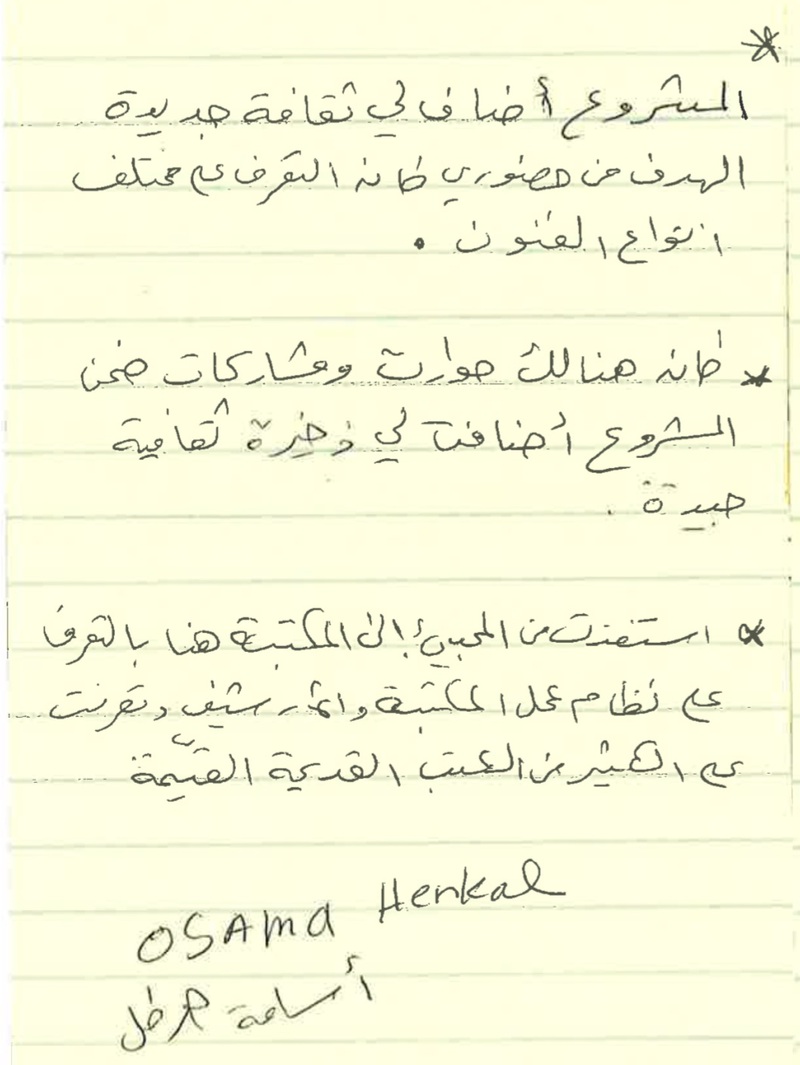 *
المشروع أضاف لي ثقافة جديدة
الهدف من حضوري كان التعرف على مختلف
انواع الفنون .
* كان هنالك حوارت ومشاركات ضمن
المشروع أضافت لي ذخيرة ثقافية
جيدة .
* استفدت من المجيئ إلى المكتبة هنا بالتعرف
على نظام عمل المكتبة والأرشيف وتعرفت
على الكثير من الكتب القديمة القيّمة
OSAMA Henkal
أسامة